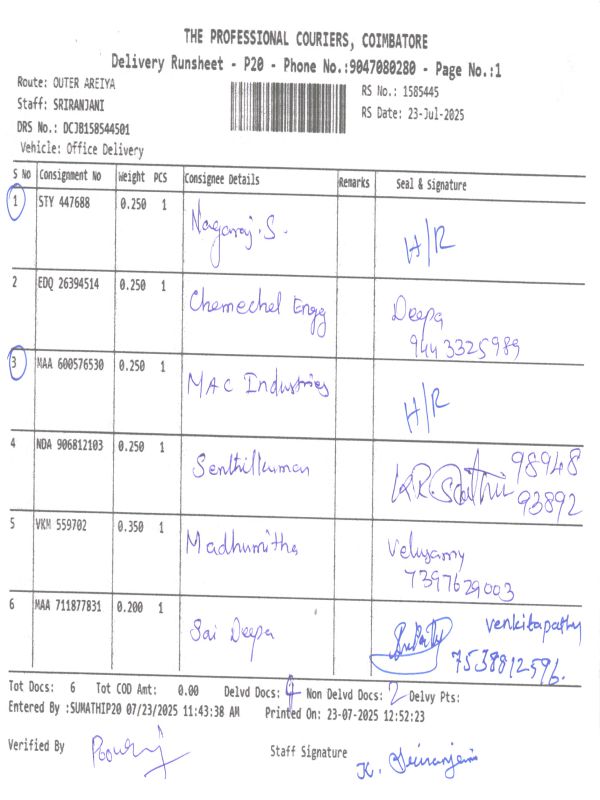 THE PROFESSIONAL COURIERS, COIMBATORE
Delivery Runsheet - P20 - Phone No.:9047080280 - Page No.:1
Route: OUTER AREIYA
RS No.: 1585445
Staff: SRIRANJANI
RS Date: 23-Jul-2025
DRS No.: DCJB158544501
Vehicle: Office Delivery
S No Consignment No Weight PCS Consignee Details Remarks Seal & Signature
1 STY 447688 0.250 1 Nagaraj.S. H/R
2 EDQ 26394514 0.250 1 Chemechel Engg Deepa
9443325989
3 MAA 600576530 0.250 1 MAC Industries H/R
4 NDA 906812103 0.250 1 Senthilkumar 98948
93892
5 VKM 559702 0.350 1 Madhumitha Veluyamy
7397629003
6 MAA 711877831 0.200 1 Sai Deepa venkitapathy
7538812596.
Tot Docs: 6 Tot COD Amt: 0.00 Delvd Docs: 4 Non Delvd Docs: 2 Delvy Pts:
Entered By :SUMATHIP20 07/23/2025 11:43:38 AM Printed On: 23-07-2025 12:52:23
Verified By Staff Signature K. Sriranjani